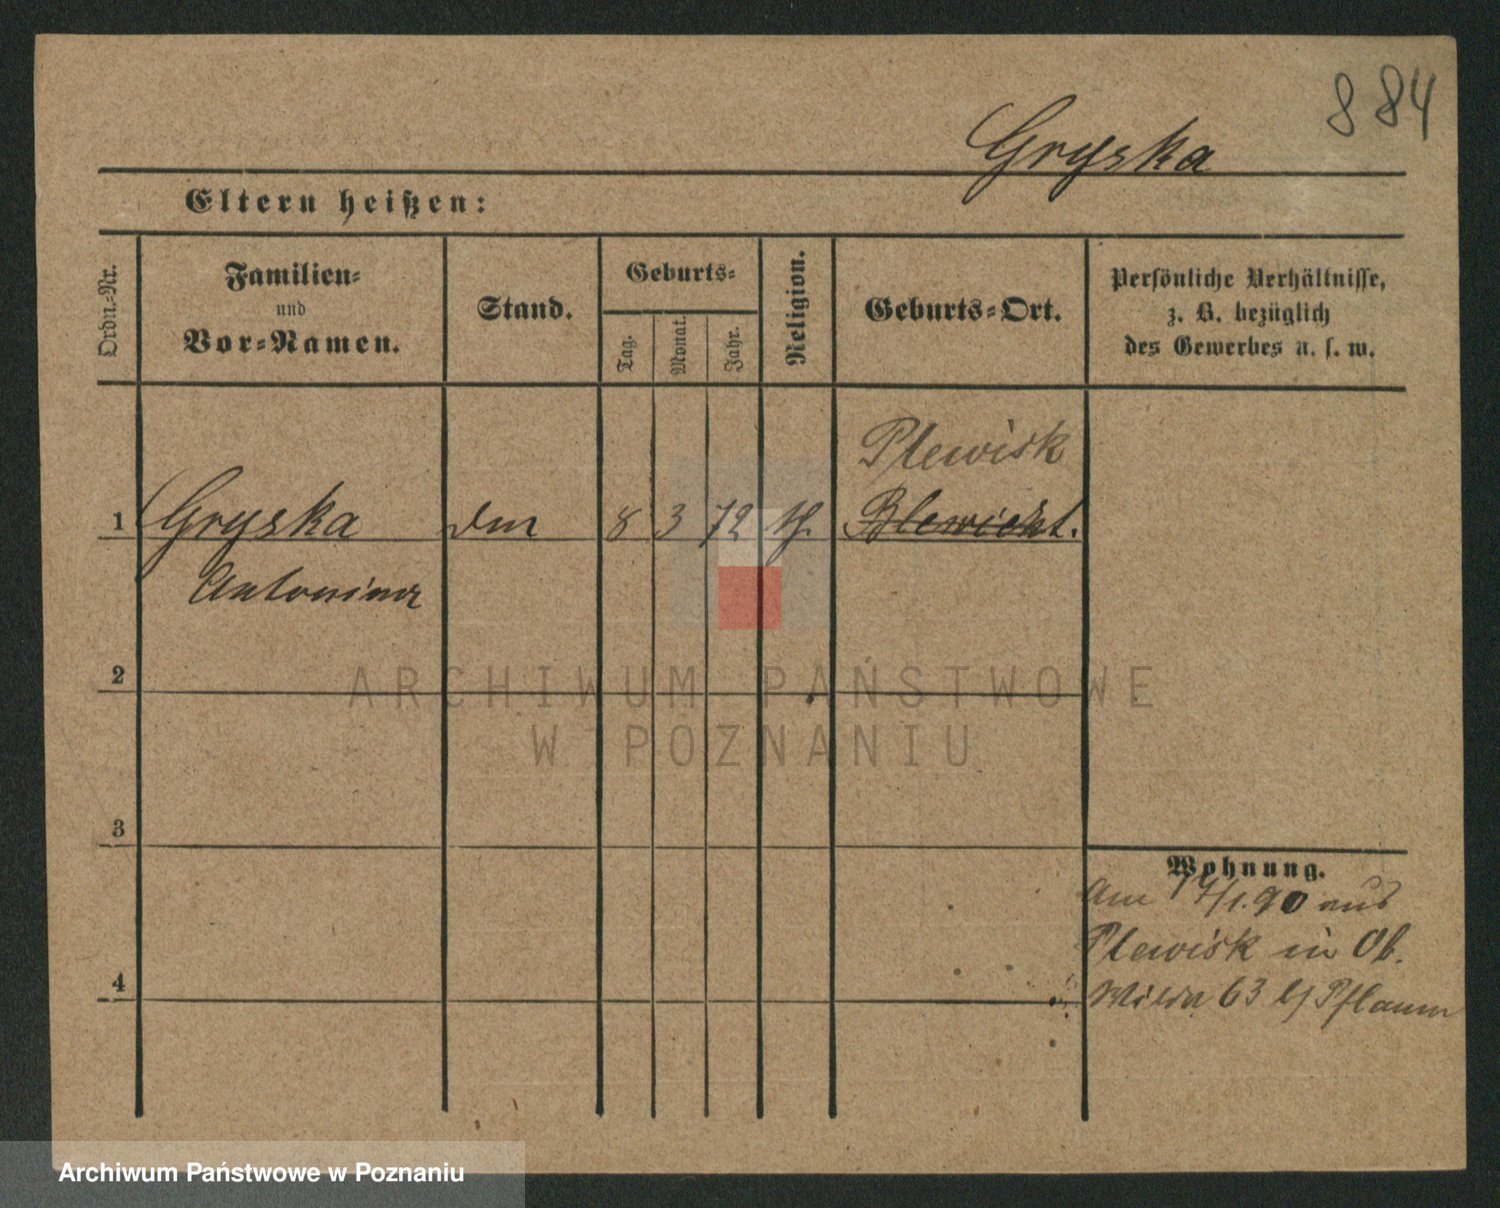 884
Gryska
Eltern heißen:
Ordn.-Nr.
Familien-
und
Vor-Namen.
Stand.
Geburts-
Tag.
Monat.
Jahr.
Religion.
Geburts-Ort.
Persönliche Verhältnisse,
z. B. bezüglich
des Gewerbes u. s. w.
Plewisk
1 Gryska 8 3 72
Antonina
2
ARCHIWUM PAŃSTWOWE
W POZNANIU
3
Wohnung.
Am 17/1.90 aus
Plewisk in Ob.
4
Wilda 63 Pflaum
Archiwum Państwowe w Poznaniu